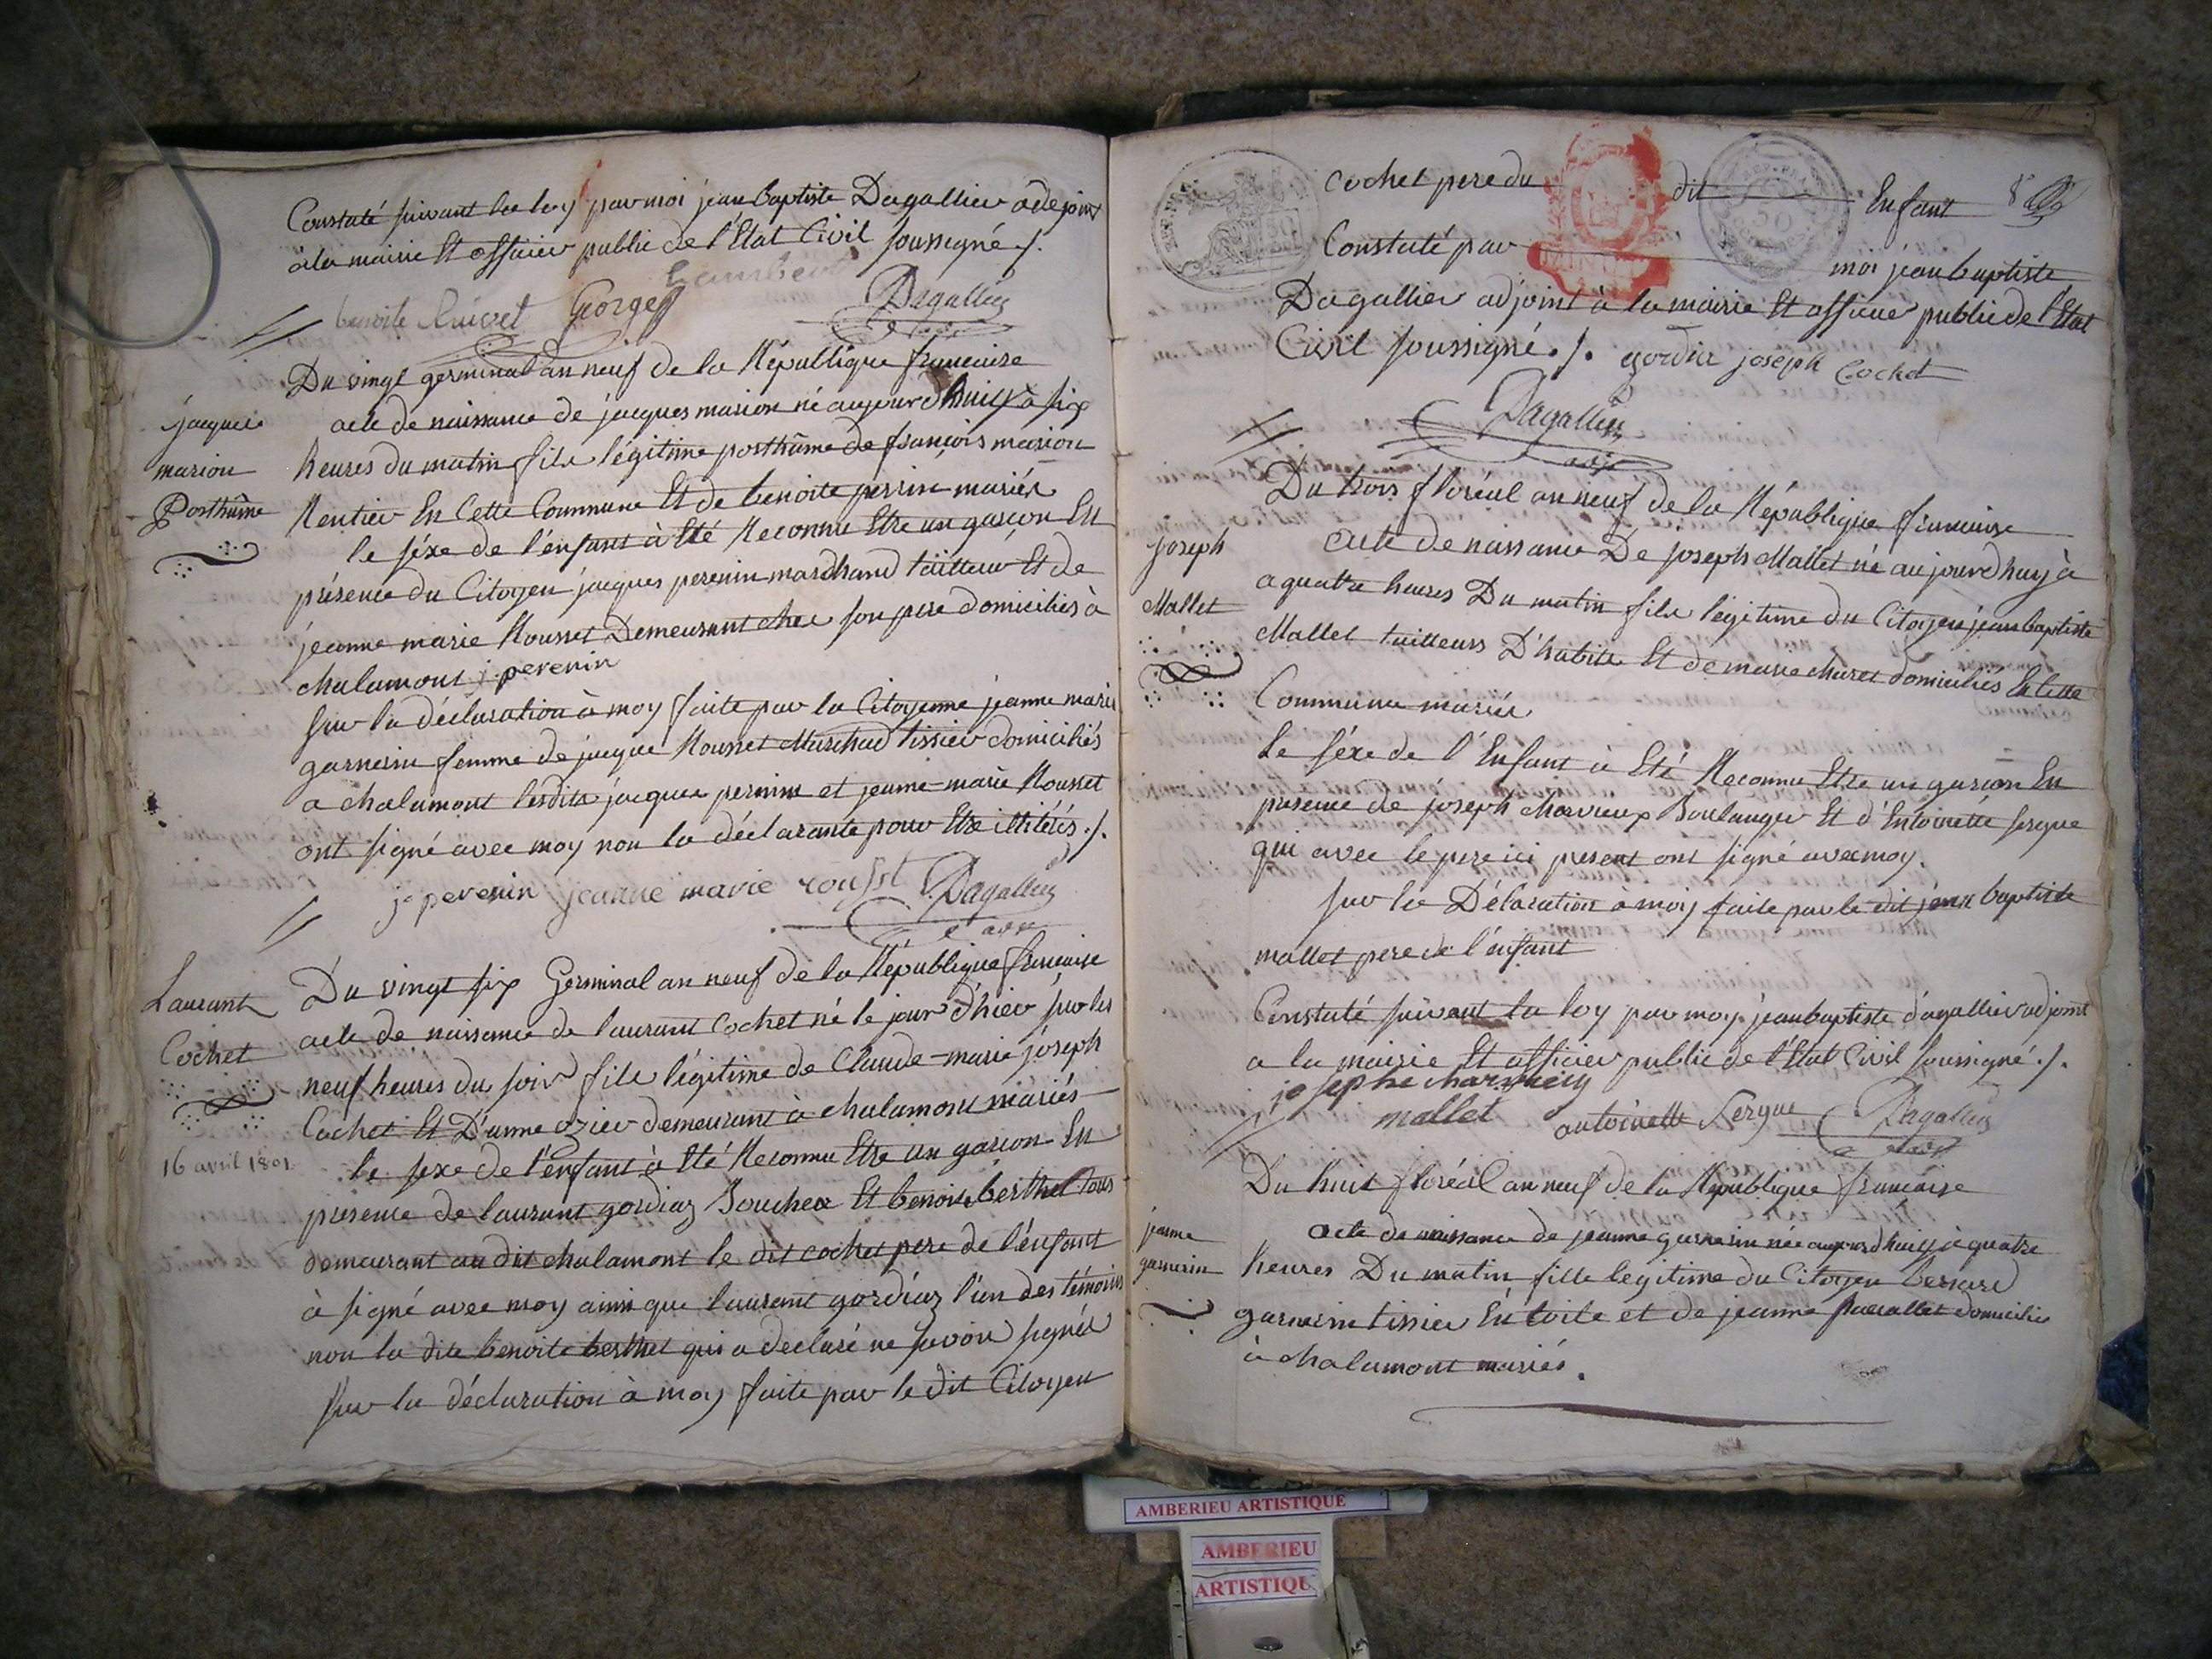 Constaté suivant la loy par moi jean baptiste Dagallier adejoint
à la mairie Et officier public de l'Etat Civil soussigné ./.
Lambert
benoite George Dagallier
Du vingt germinal an neuf de la République francaise
jacques
marion
Posthûme
acte de naissance de jacques marion né aujourdhuiy à six
heures du matin fils légitime posthûme de françois marion
Rentier En Cette Commune Et de benoite perrin mariés
le séxe de l'enfant à Eté Reconnu Etre un garçon En
présence du Citoyen jacques perenin marchand Et de
jeanne marie Rousset Demeurant chez son pere domiciliés à
chalamont j. perenin
sur la déclaration à moy faite par la Citoyenne jeanne marie
garnerin femme de jacque Rousset Marchad tissier domiciliés
a chalamont lesdits jacques perinin et jeanne-marie Rousset
ont signé avec moy non la déclarante pour Etre illitérés ./.
j. perenin jeanne marie rousset Dagallier
Laurant
Cochet
16 avril 1801.
Du vingt six Germinal an neuf de la République francaise
acte de naissance de laurant Cochet né le jour d'hier sur les
neuf heures du soir fils légitime de Claude-marie joséph
Cochet Et D'anne ozier demeurant à chalamont mariés
le sexe de l'enfant à Eté Reconnu Etre un garcon En
présence de laurant gordiaz Boucher Et benoite berthet tous
demeurant au dit chalamont le dit cochet pere de l'énfant
à signé avec moy ainsi que laurant gordiaz l'un des témoins
non la dite benoite berthet qui a declaré ne savoir signér
sur la déclaration à moy faite par le dit Citoyen
Cochet pere du dit Enfant 8
Constaté par moi jean baptiste
Dagallier adjoint à la mairie Et officier public de l'Etat
Civil soussigné ./. gordia joséph Cochet
Dagallier
adj
Du trois floréal an neuf de la République francaise
joseph
Mallet
acte de naissance De joseph Mallet né aujourdhuy à
a quatre heures Du matin fils légitime du Citoyen jean baptiste
Mallet tailleurs D'habits Et de marie domiciliés En Cette
Commune mariés
Le séxe de l'Enfant à Eté Reconnu Etre un garcon En
présence de joséph charvieux Boulanger Et d'Entoinette sergue
qui avec le pere ici present ont signé avec moy.
sur la Délaration à moy faite par le dit jean baptiste
mallet pere de l'énfant
Constaté suivant la loy par moy jean baptiste dagallier adjoint
a la mairie Et officier public de l'Etat Civil soussigné ./.
mallet antoinette Sergue Dagallier
Du huit floréal an neuf de la République francaise
jeanne
garnerin
acte de naissance de jeanne garnerin née aujourdhuiy à quatre
heures Du matin fille legitime du Citoyen bernard
garnerin tissier En toile et de jeanne domiciliés
à chalamont mariés.
AMBERIEU ARTISTIQUE
AMBERIEU
ARTISTIQU